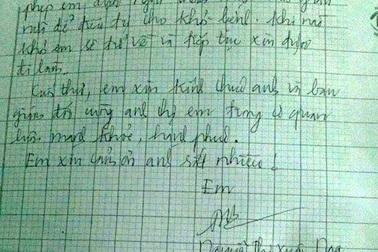 phép em được
nữa để điều trị cho khỏi bệnh. Khi nào
khỏi em sẽ trở về và tiếp tục xin được
đi làm.
Cuối thư, em xin kính chúc anh và ban
giám đốc cùng anh chị em trong cơ quan
luôn mạnh khỏe, hạnh phúc.
Em xin cảm ơn anh rất nhiều!
Em
Nguyễn Thị Xuân